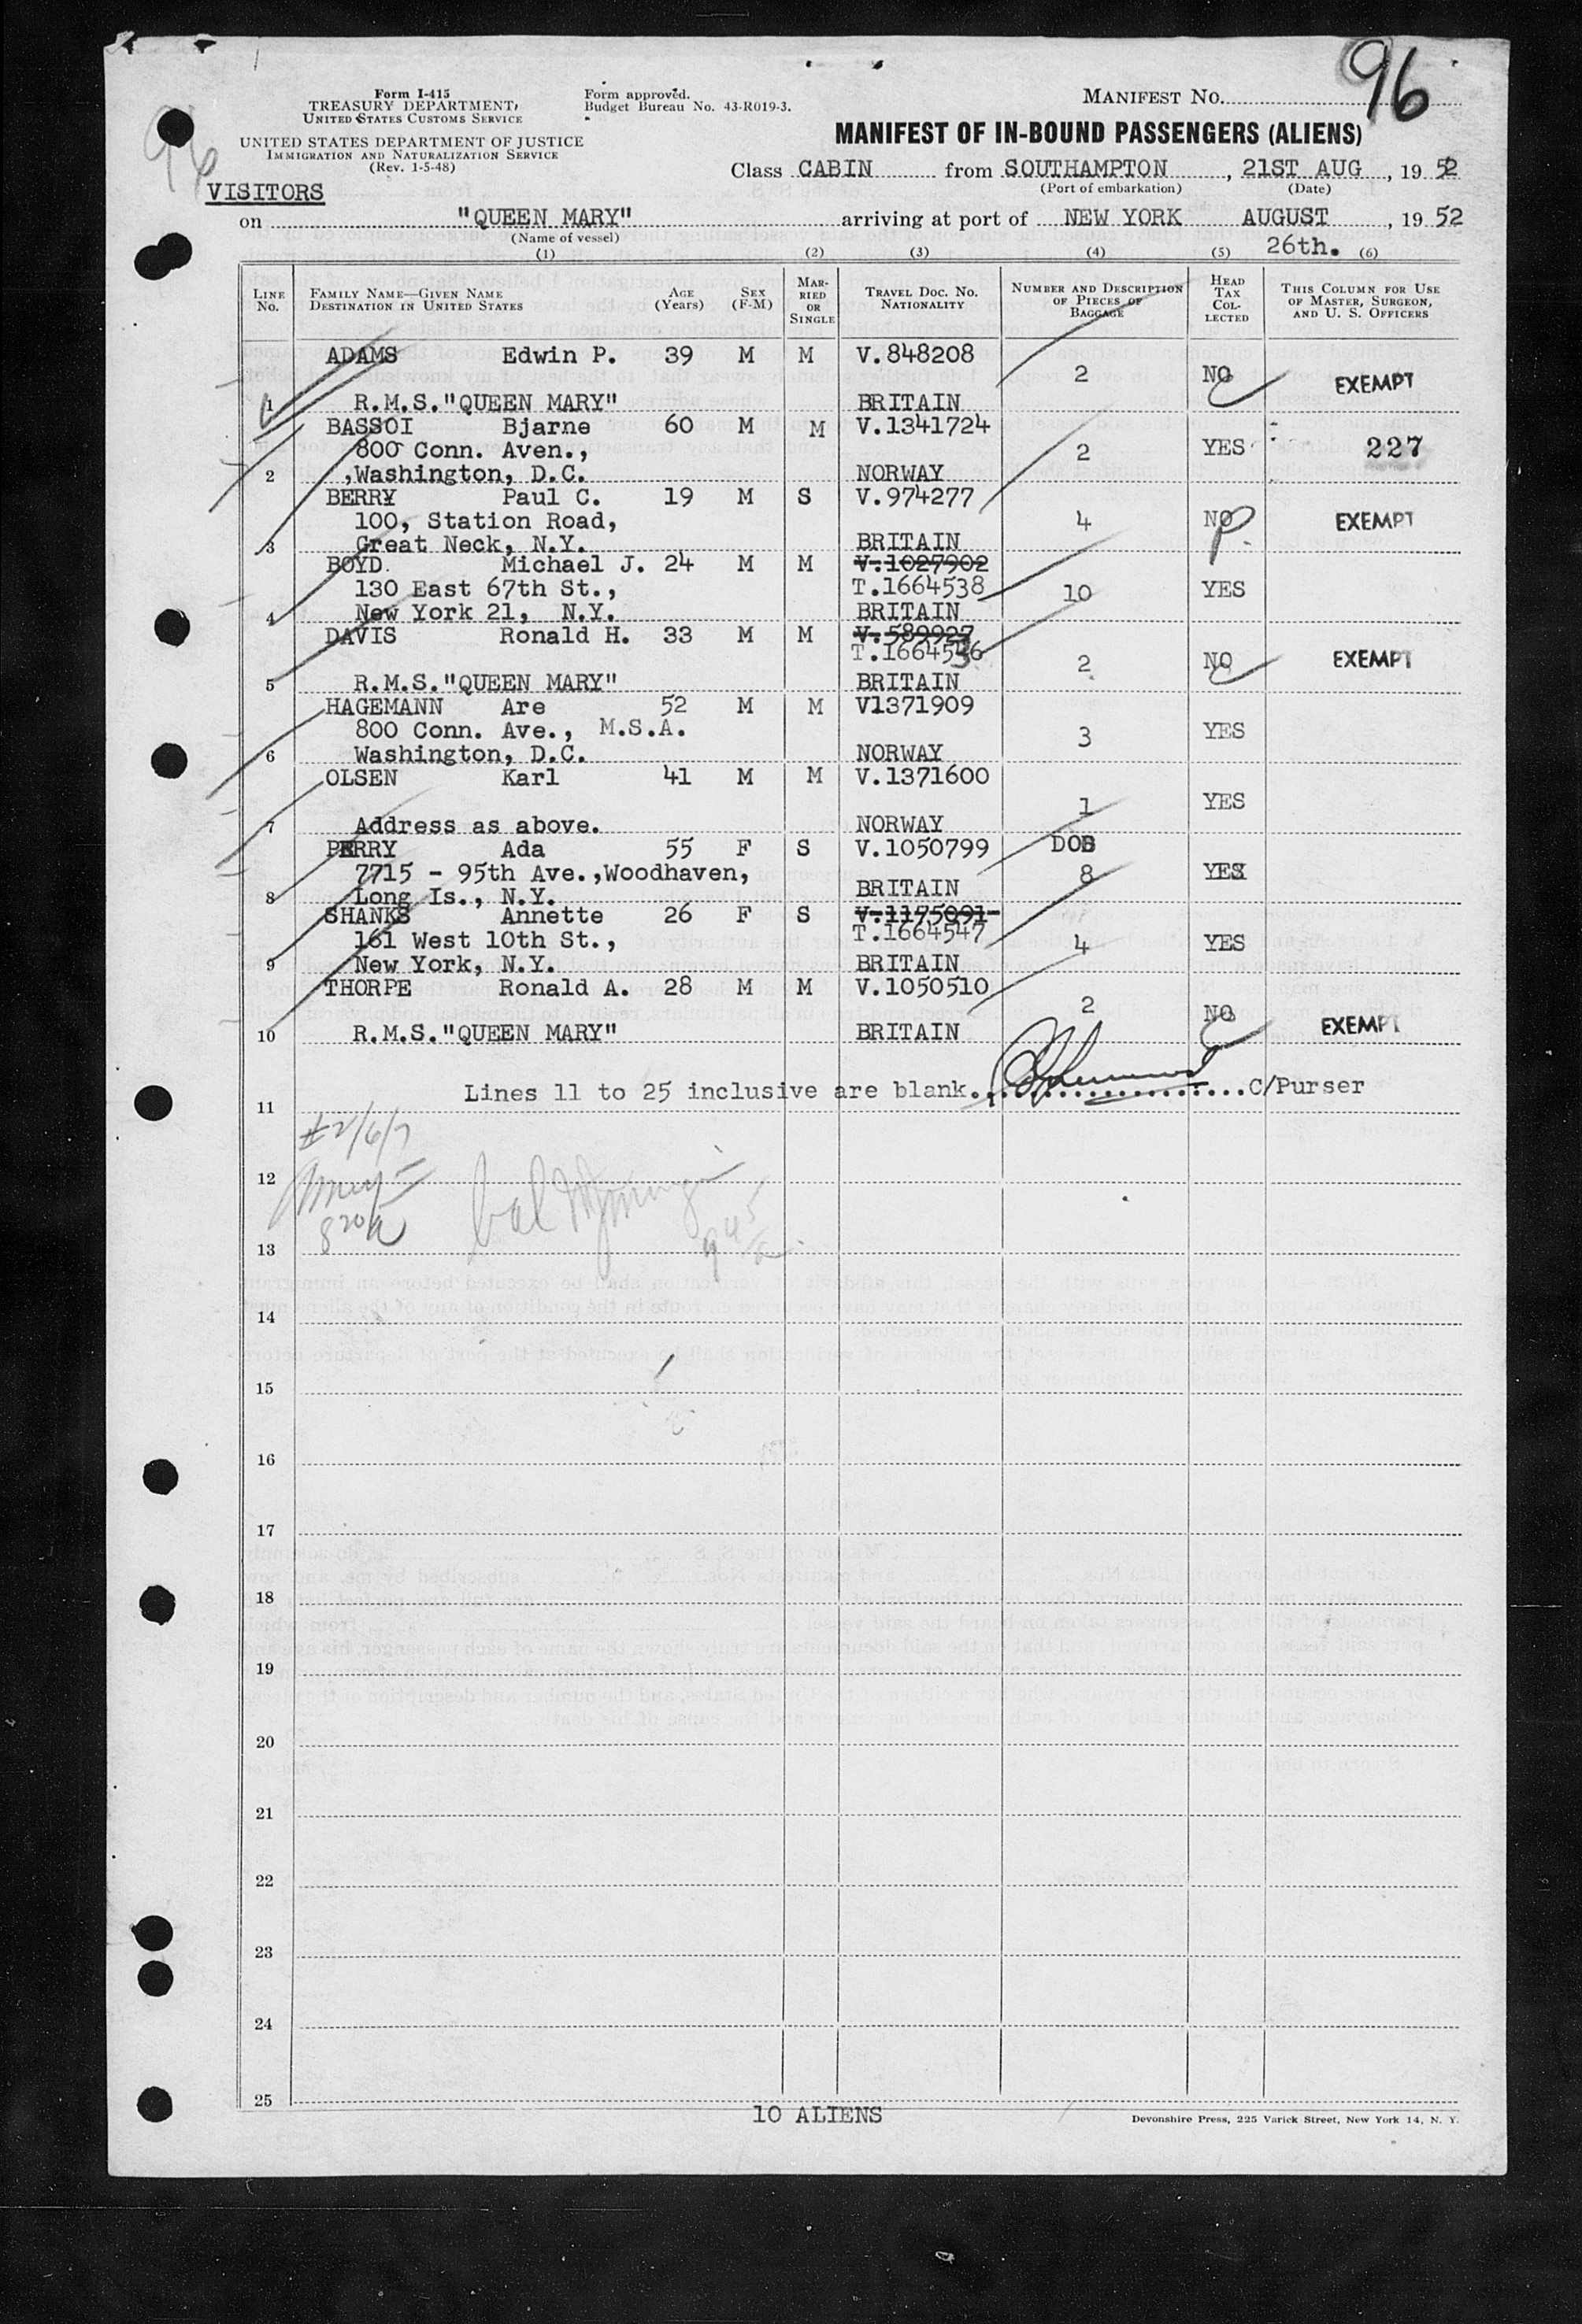 96
Form I-415
TREASURY DEPARTMENT
UNITED STATES CUSTOMS SERVICE
Form approved.
Budget Bureau No. 43-R019-3.
MANIFEST NO. 96
UNITED STATES DEPARTMENT OF JUSTICE
IMMIGRATION AND NATURALIZATION SERVICE
(Rev. 1-5-48)
MANIFEST OF IN-BOUND PASSENGERS (ALIENS)
Class CABIN from SOUTHAMPTON, 21ST AUG, 1952
(Port of embarkation) (Date)
VISITORS
on "QUEEN MARY" arriving at port of NEW YORK AUGUST, 1952
(Name of vessel) 26th.
(1) (2) (3) (4) (5) (6)
LINE No. FAMILY NAME—GIVEN NAME DESTINATION IN UNITED STATES AGE (Years) SEX (F-M) MARRIED OR SINGLE TRAVEL DOC. NO. NATIONALITY NUMBER AND DESCRIPTION OF PIECES OF BAGGAGE HEAD TAX COLLECTED THIS COLUMN FOR USE OF MASTER, SURGEON, AND U. S. OFFICERS
ADAMS Edwin P. 39 M M V.848208
2 NO EXEMPT
1 R.M.S."QUEEN MARY" BRITAIN
BASSOI Bjarne 60 M M V.1341724
800 Conn. Aven., 2 YES 227
2 ,Washington, D.C. NORWAY
BERRY Paul C. 19 M S V.974277
100, Station Road, 4 NO EXEMPT
3 Great Neck, N.Y. BRITAIN
BOYD Michael J. 24 M M V.1027902
130 East 67th St., T.1664538 10 YES
4 New York 21, N.Y. BRITAIN
DAVIS Ronald H. 33 M M V.589927
T.1664536 2 NO EXEMPT
5 R.M.S."QUEEN MARY" BRITAIN
HAGEMANN Are 52 M M V1371909
800 Conn. Ave., M.S.A. 3 YES
6 Washington, D.C. NORWAY
OLSEN Karl 41 M M V.1371600
1 YES
7 Address as above. NORWAY
PERRY Ada 55 F S V.1050799
7715 - 95th Ave.,Woodhaven, 8 YES
8 Long Is., N.Y. BRITAIN
SHANKS Annette 26 F S V.1175091
161 West 10th St., T.1664547 4 YES
9 New York, N.Y. BRITAIN
THORPE Ronald A. 28 M M V.1050510
2 NO EXEMPT
10 R.M.S."QUEEN MARY" BRITAIN
Lines 11 to 25 inclusive are blank. C/Purser
11
12
13
14
15
16
17
18
19
20
21
22
23
24
25
10 ALIENS
Devonshire Press, 225 Varick Street, New York 14, N. Y.